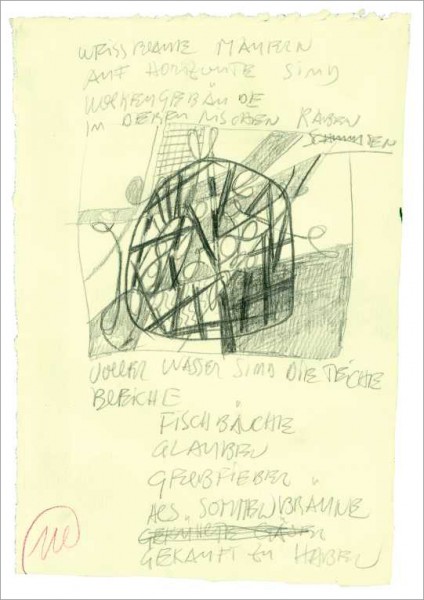 AUF HORIZONTE SIND
WOLKENGEBÄUDE
IN DEREN NISCHEN RABEN
VOLLER WASSER SIND DIE TEICHE
BLEICHE
FISCHBÄUCHE
GLAUBEN
GELBFIEBER
ALS SONNENBRÄUNE
GEKAUFT ZU HABEN